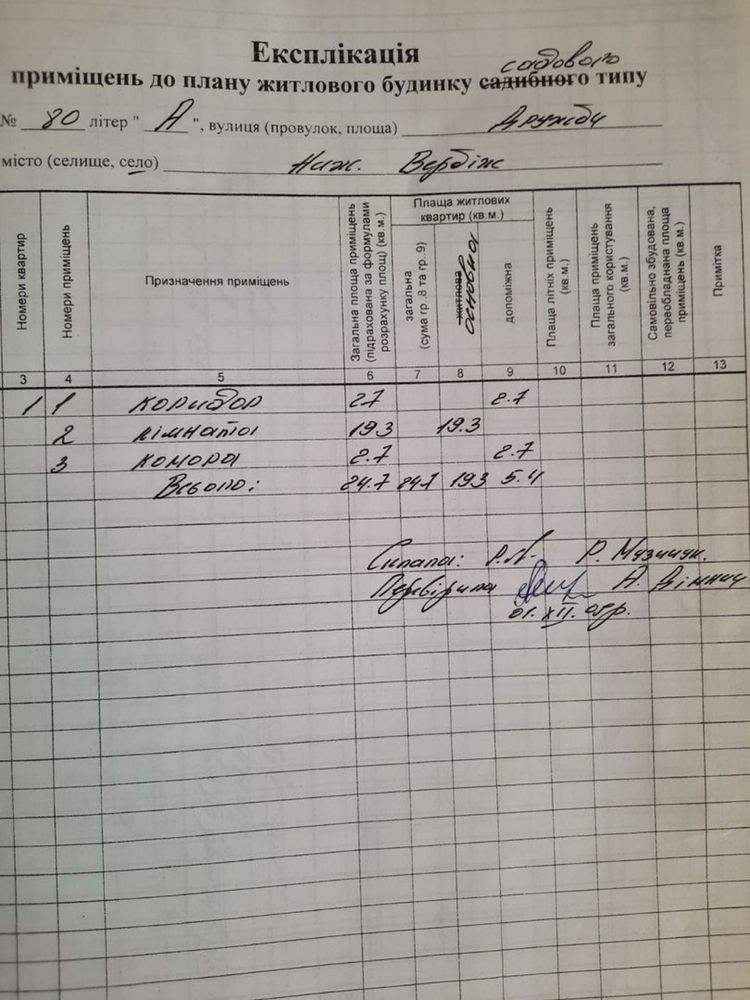 Експлікація
садового
приміщень до плану житлового будинку садибного типу
№ 80 літер " А ", вулиця (провулок, площа) Дружби
місто (селище, село) Ниж. Вербіж
Номери квартир
Номери приміщень
Призначення приміщень
Загальна площа приміщень (підрахована за формулами розрахунку площ) (кв.м.)
Площа житлових квартир (кв.м.)
загальна (сума гр. 8 та гр. 9)
житлова основна
допоміжна
Площа літніх приміщень (кв.м.)
Площа приміщень загального користування (кв.м.)
Самовільно збудована, переобладнана площа приміщень (кв.м.)
Примітка
3 4 5 6 7 8 9 10 11 12 13
1 1 коридор 2.7 2.7
2 кімната 19.3 19.3
3 комора 2.7 2.7
Всього: 24.7 24.7 19.3 5.4
Склала: Р. Музичук.
Перевірила А.
01. XII. 05р.